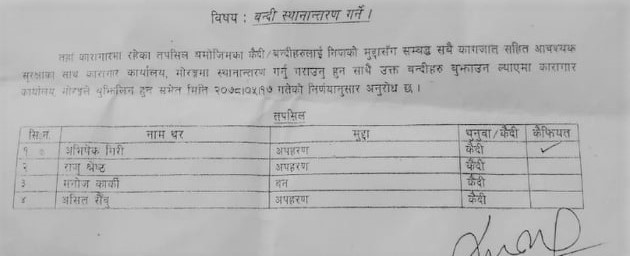 विषय : बन्दी स्थानान्तरण गर्ने ।
तहाँ कारागारमा रहेका तपसिल बमोजिमका कैदी/बन्दीहरुलाई निजको मुद्दासँग सम्बद्ध सबै कागजात सहित आवश्यक
सुरक्षाका साथ कारागार कार्यालय, मोरङमा स्थानान्तरण गर्नु गराउनु हुन साथै उक्त बन्दीहरु बुझाउन ल्याएमा कारागार
कार्यालय मोरङले बुझिलिन हुन समेत मिति २०७८।०५।१७ गतेको निर्णयानुसार अनुरोध छ ।
तपसिल
सि.न. नाम थर मुद्दा थुनुवा/कैदी कैफियत
१ अभिषेक गिरी अपहरण कैदी
२ राजु श्रेष्ठ अपहरण कैदी
३ मनोज कार्की कैदी
४ अपहरण कैदी